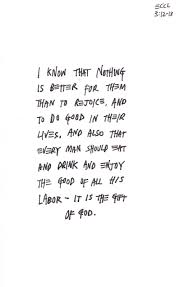 ECCL
3:12-13
I KNOW THAT NOTHING
IS BETTER FOR THEM
THAN TO REJOICE, AND
TO DO GOOD IN THEIR
LIVES, AND ALSO THAT
EVERY MAN SHOULD EAT
AND DRINK AND ENJOY
THE GOOD OF ALL HIS
LABOR - IT IS THE GIFT
OF GOD.